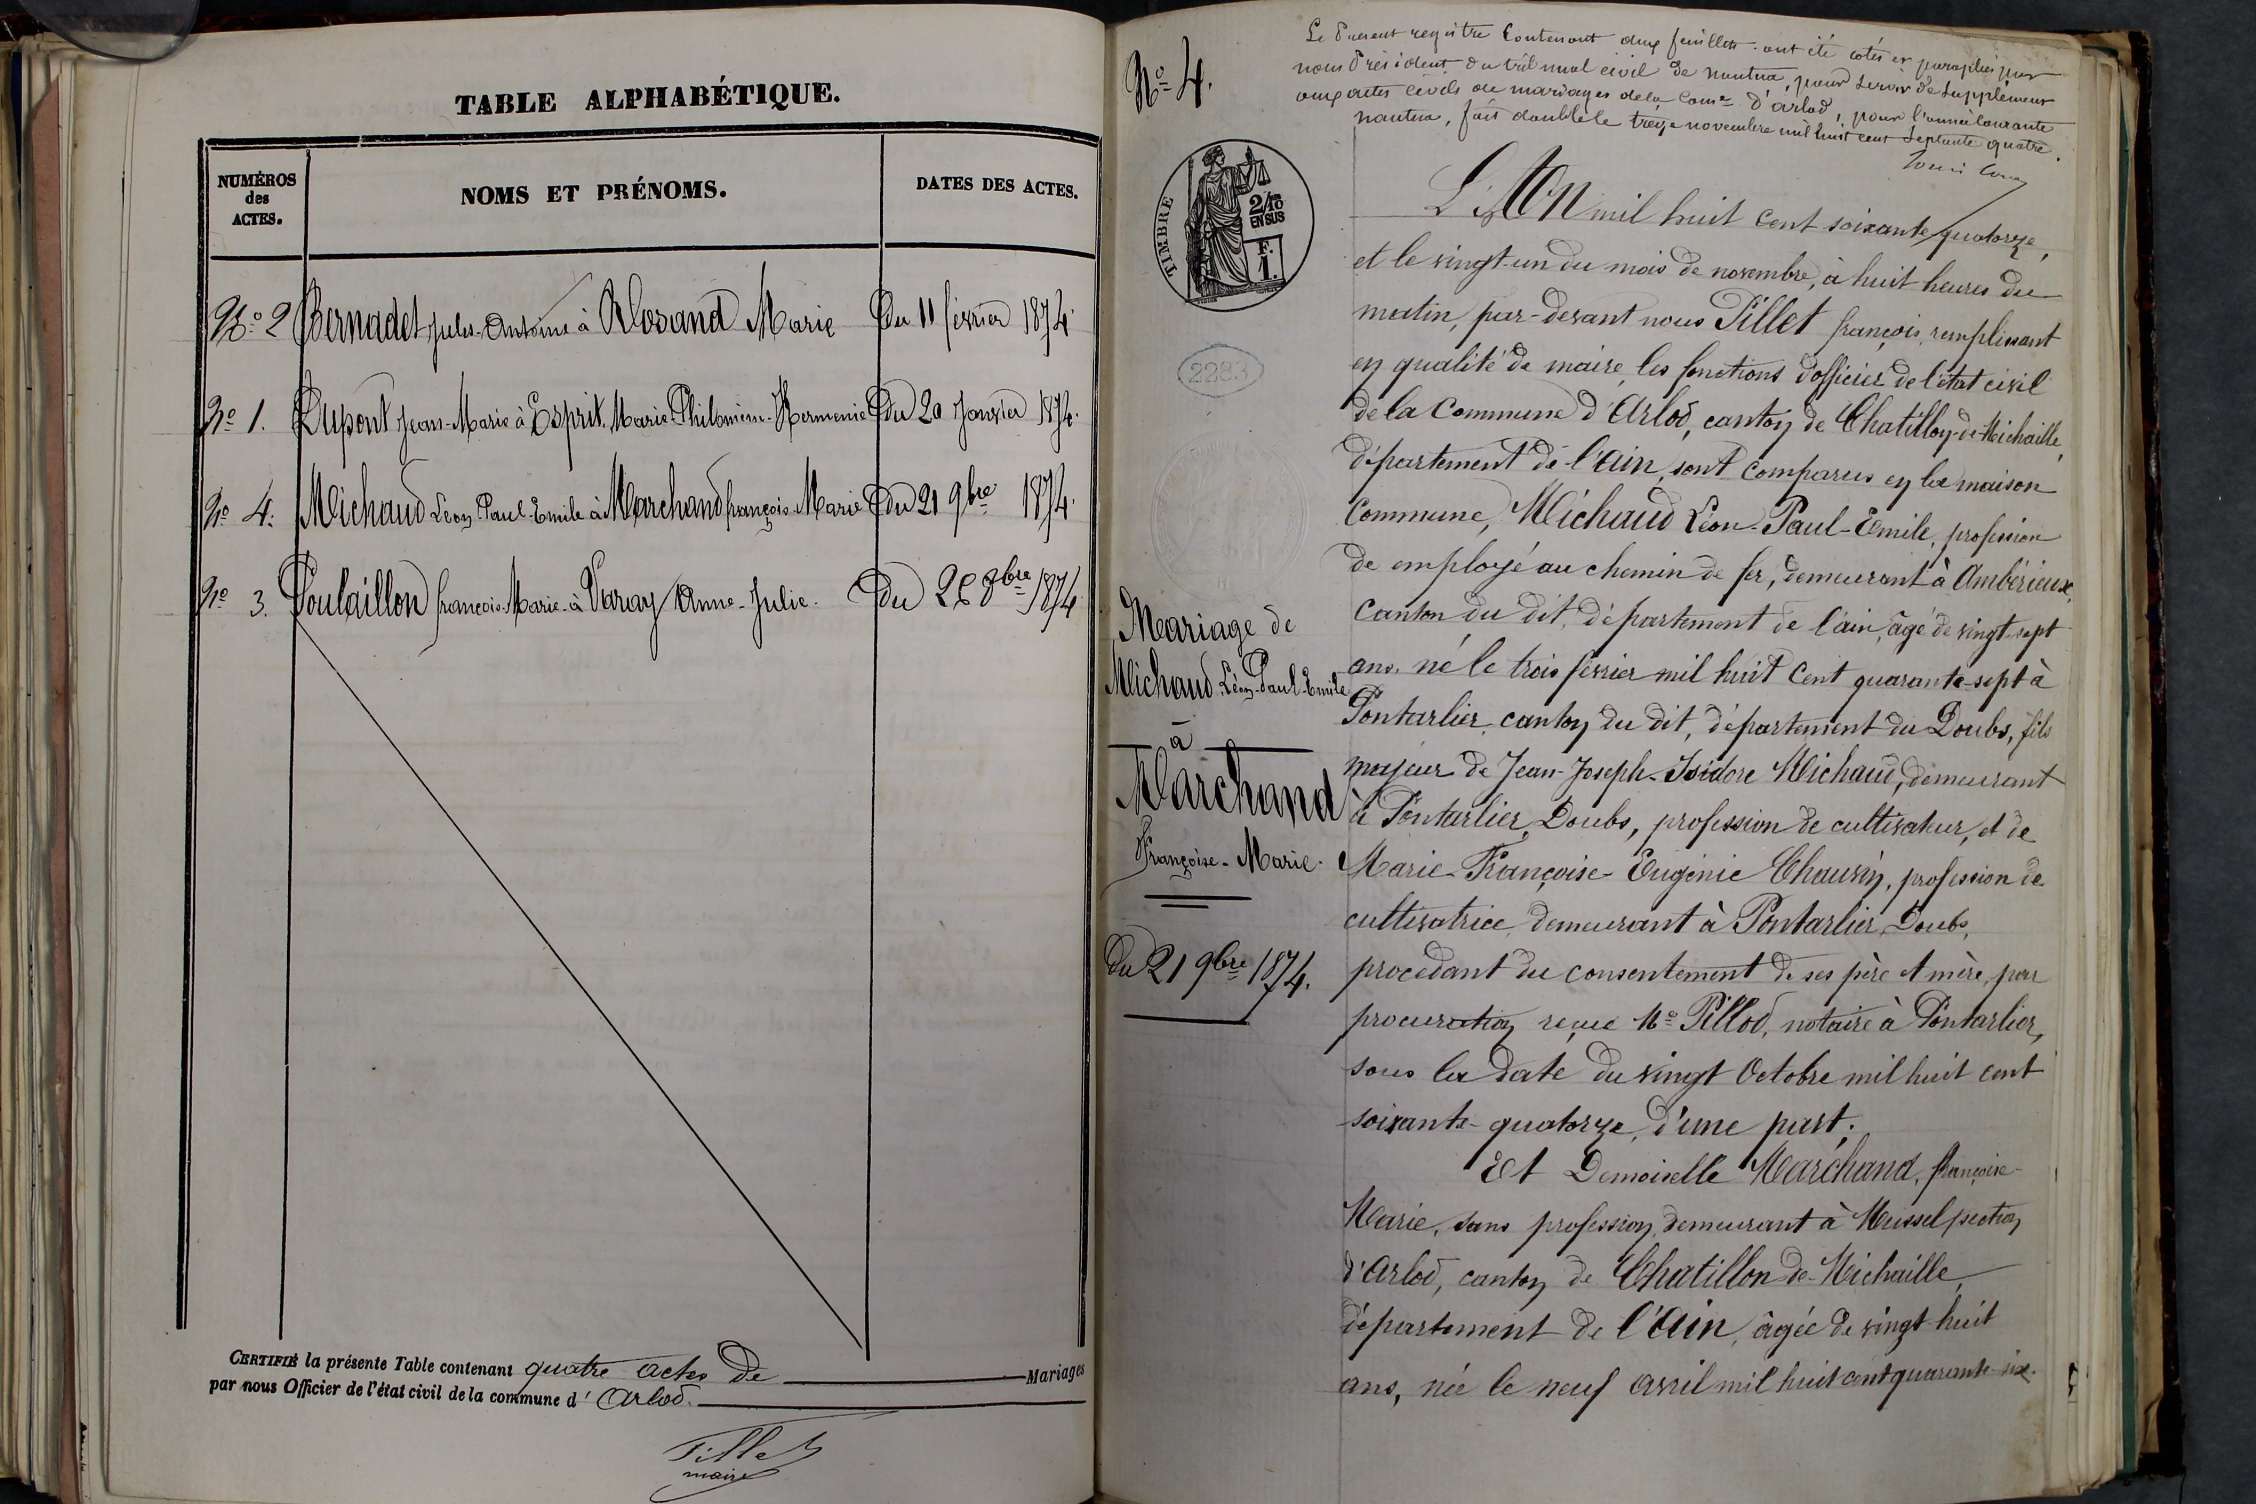 TABLE ALPHABÉTIQUE.
NUMÉROS
des
ACTES.
NOMS ET PRÉNOMS.
DATES DES ACTES.
No. 2 Bernadet Jules-Antoine à Rosand Marie Du 11 février 1874.
No. 1. Dupont Jean-Marie à Esprit Marie-Philomène-Hermenie Du 20 Janvier 1874.
No. 4. Michaud Léon-Paul-Emile à Marchand françois-Marie Du 21 9bre 1874.
No. 3. Poulaillon françois-Marie à Varay Anne-Julie. Du 28 8bre 1874
CERTIFIÉ la présente Table contenant quatre actes de Mariages
par nous Officier de l'état civil de la commune d' Arlod.
Pillet
maire
No. 4.
Le Présent registre Contenant deux feuillets ont été cotés et paraphés par
nous Président du tribunal civil de nantua, pour servir de supplément
aux actes civils de mariages de la Come d'arlod, pour l'année courante
nantua, fait double le treize novembre mil huit cent septante quatre.
TIMBRE
2/10
EN SUS
F.
1.
2283
Mariage de
Michaud Léon-Paul-Emile
à
Marchand
Françoise-Marie.
Du 21 9bre 1874.
L'AN mil huit cent soixante quatorze,
et le vingt-un du mois de novembre, à huit heures du
matin, par-devant nous Pillet françois, remplissant
en qualité de maire les fonctions d'officier de l'état civil
de la Commune d'Arlod, canton de Chatillon-de-Michaille,
département de l'Ain, sont comparus en la maison
Commune, Michaud Léon-Paul-Emile, profession
de employé au chemin de fer, demeurant à Ambérieux,
canton du dit, département de l'ain, âgé de vingt-sept
ans, né le trois février mil huit cent quarante-sept à
Pontarlier, canton du dit, département du Doubs, fils
majeur de Jean-Joseph-Isidore Michaud, demeurant
à Pontarlier, Doubs, profession de cultivateur, et de
Marie-Françoise-Eugénie Chauvin, profession de
cultivatrice, demeurant à Pontarlier, Doubs,
procédant du consentement de ses père et mère, par
procuration reçue Me Pillod, notaire à Pontarlier,
sous la date du vingt Octobre mil huit cent
soixante-quatorze, d'une part;
Et Demoiselle Marchand, françoise-
Marie, sans profession, demeurant à Mussel section
d'Arlod, canton de Chatillon-de-Michaille,
département de l'Ain, âgée de vingt-huit
ans, née le neuf avril mil huit cent quarante-six.